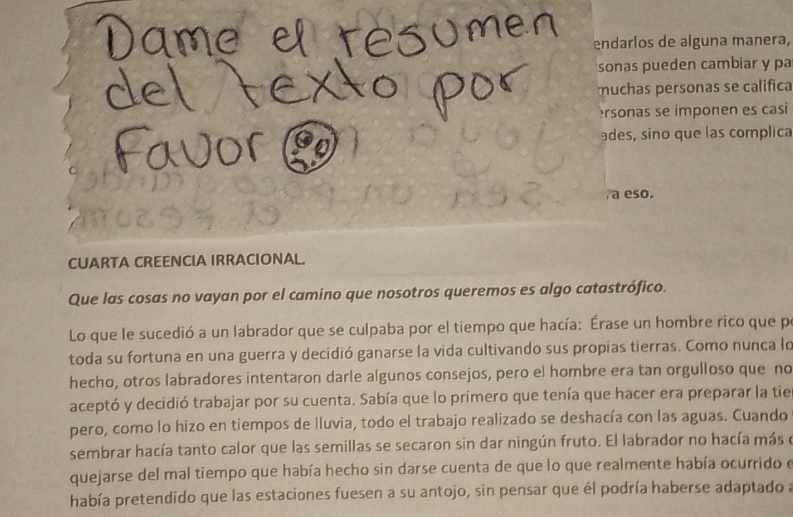 Dame el resumen
del texto por
favor
endarlos de alguna manera,
sonas pueden cambiar y pa
muchas personas se califica
ersonas se imponen es casi
ades, sino que las complica
a eso.
CUARTA CREENCIA IRRACIONAL.
Que las cosas no vayan por el camino que nosotros queremos es algo catastrófico.
Lo que le sucedió a un labrador que se culpaba por el tiempo que hacía: Érase un hombre rico que p
toda su fortuna en una guerra y decidió ganarse la vida cultivando sus propias tierras. Como nunca lo
hecho, otros labradores intentaron darle algunos consejos, pero el hombre era tan orgulloso que no
aceptó y decidió trabajar por su cuenta. Sabía que lo primero que tenía que hacer era preparar la tie
pero, como lo hizo en tiempos de lluvia, todo el trabajo realizado se deshacía con las aguas. Cuando
sembrar hacía tanto calor que las semillas se secaron sin dar ningún fruto. El labrador no hacía más
quejarse del mal tiempo que había hecho sin darse cuenta de que lo que realmente había ocurrido e
había pretendido que las estaciones fuesen a su antojo, sin pensar que él podría haberse adaptado a